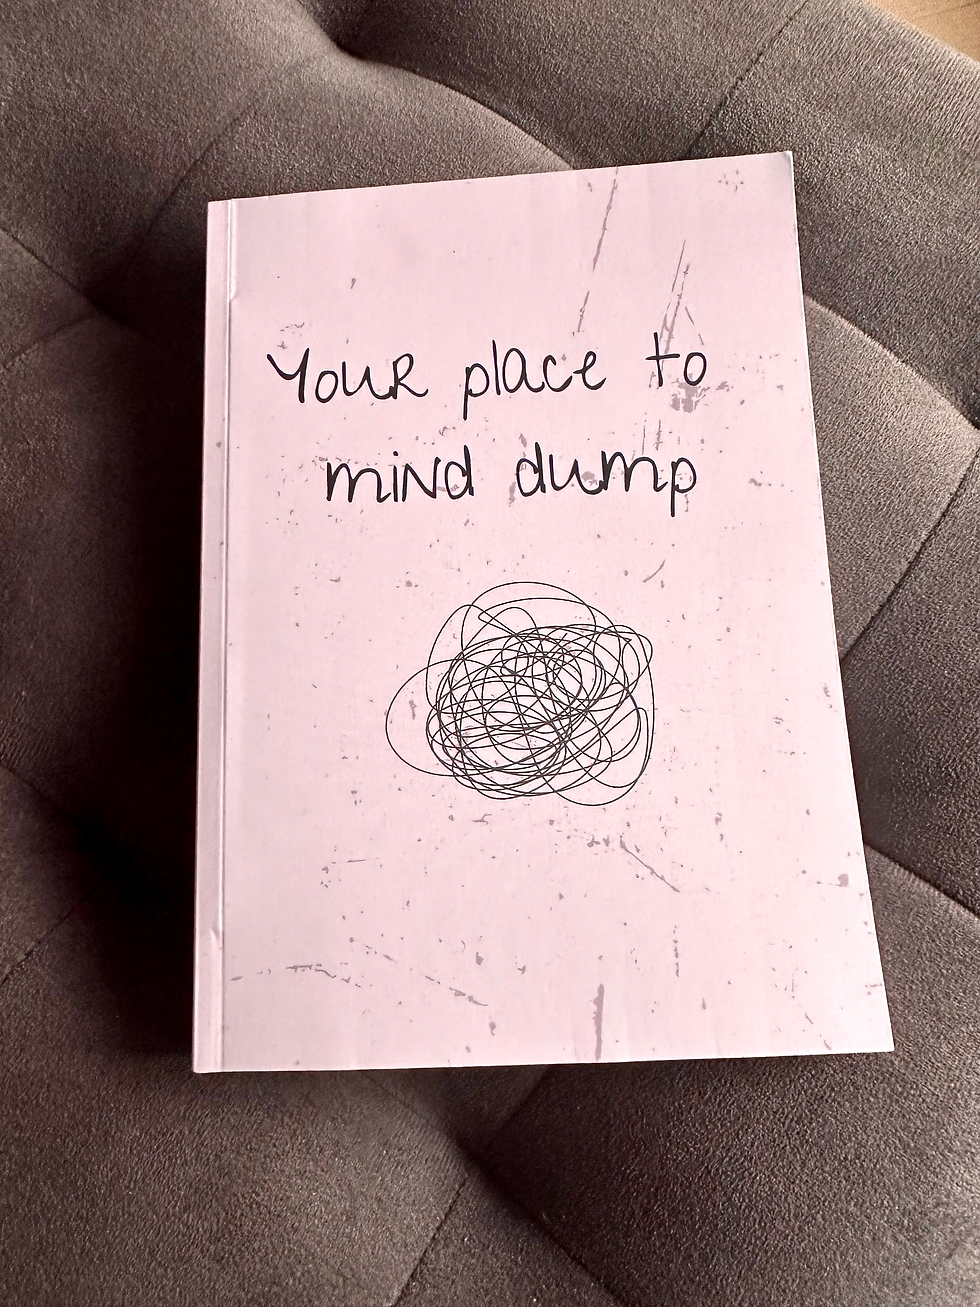 Your place to
mind dump